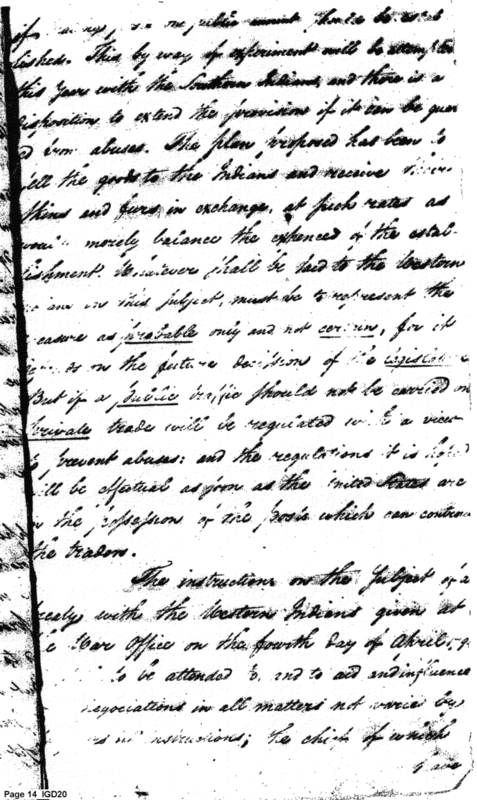 public should be estab
lished. This by way of experiment will be attempted
this year with the Southern Indians, and there is a
disposition to extend the provision if it can be guar
d from abuses. The plan proposed has been to
sell the goods to the Indians and receive their
skins and furs in exchange, at such rates as
would merely balance the expences of the estab-
lishment. Whatever shall be said to the Western
Indians on this subject, must be to represent the
measure as probable only and not certain, for it
depends on the future decision of the legislature
But if a public traffic should not be carried on
private trade will be regulated with a view
to prevent abuses: and the regulations it is hoped
will be effectual as soon as the United States are
in the possession of the posts which can controul
the traders.
The instructions on the subject of a
treaty with the Western Indians given at
the War Office on the fourth day of April 179
to be attended to, and to aid and influence
negociations in all matters not varied by
instructions; the chief of which
I have
Page 14 IGD20